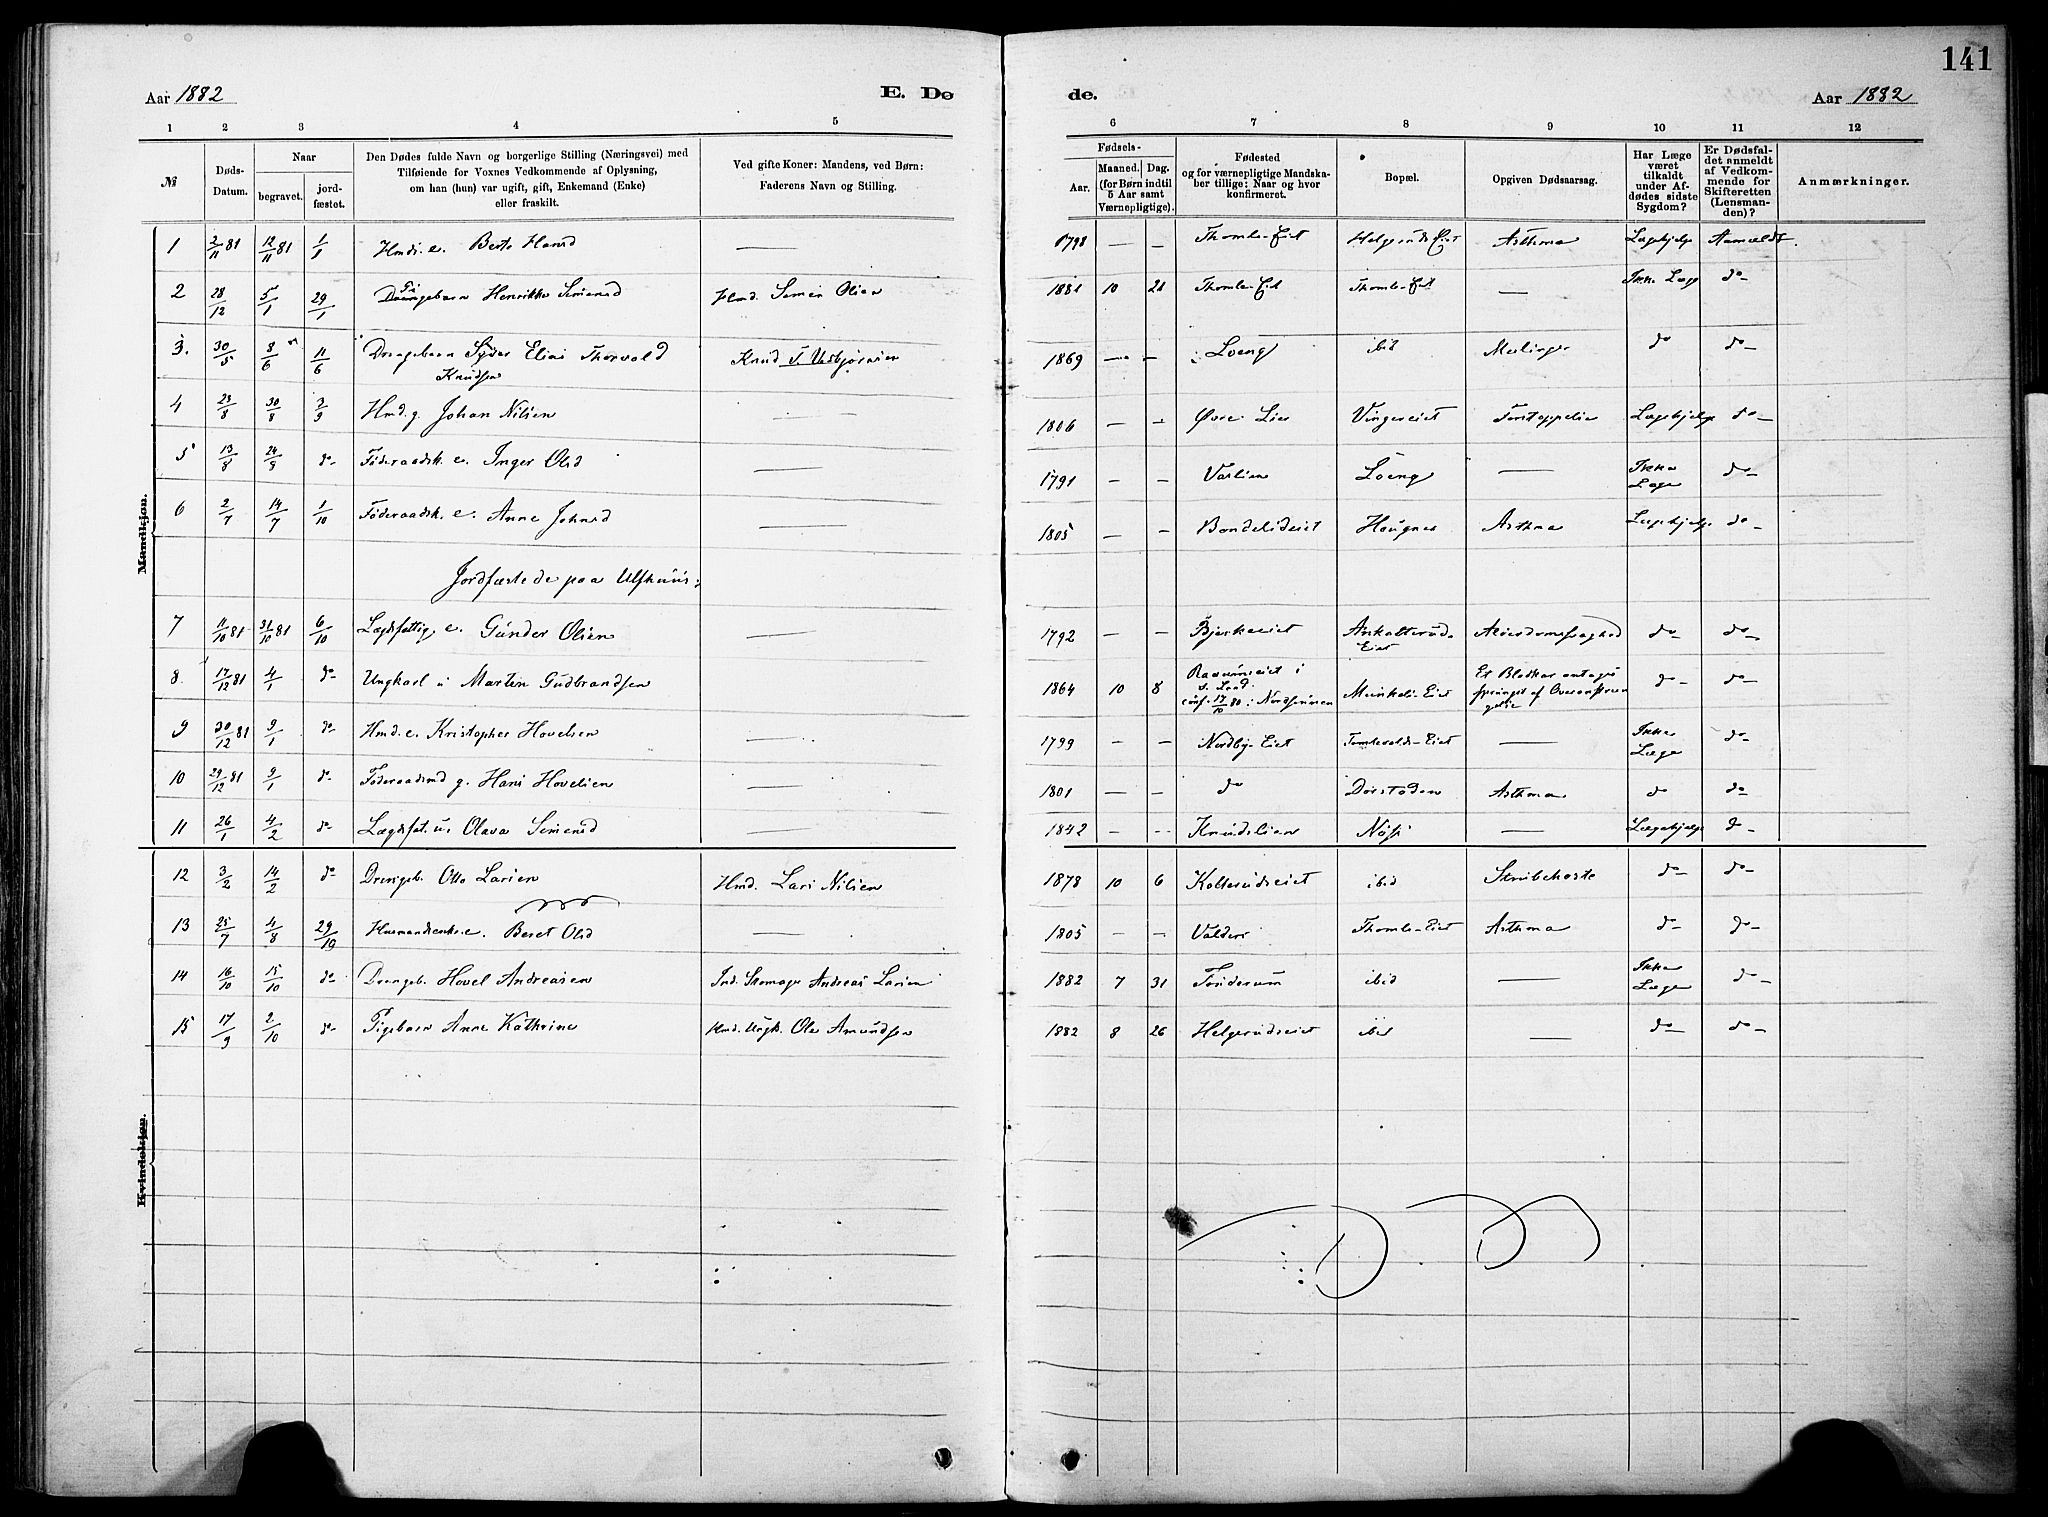 141
Aar 1882
E. Dø
de.
Aar 1882
1 2 3 4 5 6 7 8 9 10 11 12
№
Døds-Datum.
Naar
begravet.
jord-fæstet.
Den Dødes fulde Navn og borgerlige Stilling (Næringsvei) med
Tilføiende for Voxnes Vedkommende af Oplysning,
om han (hun) var ugift, gift, Enkemand (Enke)
eller fraskilt.
Ved gifte Koner: Mandens, ved Børn:
Faderens Navn og Stilling.
Fødsels-
Aar.
Maaned. Dag.
(for Børn indtil
5 Aar samt
Værnepligtige).
Fødested
og for værnepligtige Mandska-
ber tillige: Naar og hvor
konfirmeret.
Bopæl.
Opgiven Dødsaarsag.
Har Læge
været
tilkaldt
under Af-
dødes sidste
Sygdom?
Er Dødsfal-
det anmeldt
af Vedkom-
mende for
Skifteretten
(Lensman-
den)?
Anmærkninger.
Mandkjøn.
1 2/11 81 12/11 81 1/1 Hmds. e. Berte Hansd — 1798 — — Thomle-Eiet Helgerudseiet Asthma Lægehjelp Anmeldt.
2 28/12 5/1 29/1 Pigebarn Henrikke Simensd Hmd. Simen Olsen 1881 10 21 Thomle-Eiet Thomle-Eiet — Ikke Læge do
3. 30/5 8/6 11/6 Drengebarn Elias Thorvald Knudsen Knud T. 1869 — — Loeng ibid do do
4 23/8 30/8 3/9 Hmd. g. Johan Nilsen — 1806 — — Øvre Lier Vingereiet Forstoppelse Lægehjelp do
5 13/8 24/8 do Føderaadsk. e. Inger Olsd — 1791 — — Løeng — Ikke Læge do
6 2/7 14/7 1/10 Føderaadsk. e. Anne Johnsd — 1805 — — Bondelideiet Haugner Asthma Lægehjelp do
Jordfæstede paa Ulfkuus:
7 11/10 81 31/10 81 6/10 Lægdsfattig e. Gunder Olsen — 1792 — — Bjerkeeiet Eiet Alderdomssvaghed do do
8. 17/12 81 4/1 do Ungkarl u Martin Gudbrandsen 1864 10 8 i S. Land conf. 17/10 80 i Nordsinnen Eiet do do
9 30/12 81 9/1 do Hmd. e. Kristopher Hovelsen — 1799 — — Nordby-Eiet Tomlevolds-Eiet — Ikke Læge do
10 29/12 81 9/1 do Føderaadsmd g. Hans Hovelsen — 1801 — — do Asthma do do
11 26/1 4/2 do Lægdsfat. u. Olava Simensd — 1842 — — Knudslien Nøss — Lægehjelp do
12 3/2 14/2 do Drengeb. Otto Larsen Hmd. Lars Nilsen 1878 10 6 Kolterudseiet ibid Strubehoste do do
13 25/7 4/8 29/10 Husmandsenke e. Beret Olsd — 1805 — — Valders Thomle-Eiet Asthma do do
14 16/10 15/10 do Drengeb. Hovel Andreasen Ind. Skomager Andreas Larsen 1882 7 31 ibid — Ikke Læge do
15 17/9 2/10 do Pigebarn Anne Kathrine Hmd. Ungk. Ole Amundsen 1882 8 26 Helgerudseiet ibid — do do
Kvindekjøn.